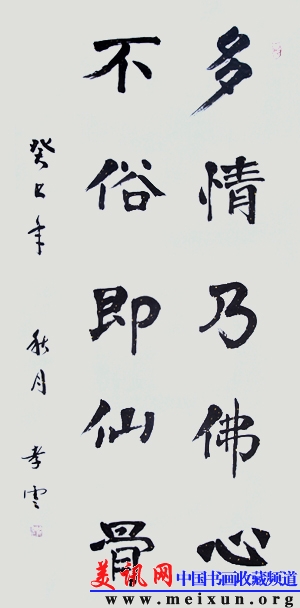 多情乃佛心
不俗即仙骨
癸巳年 秋月 孝云
美讯网 中国书画收藏频道
www.meixun.org